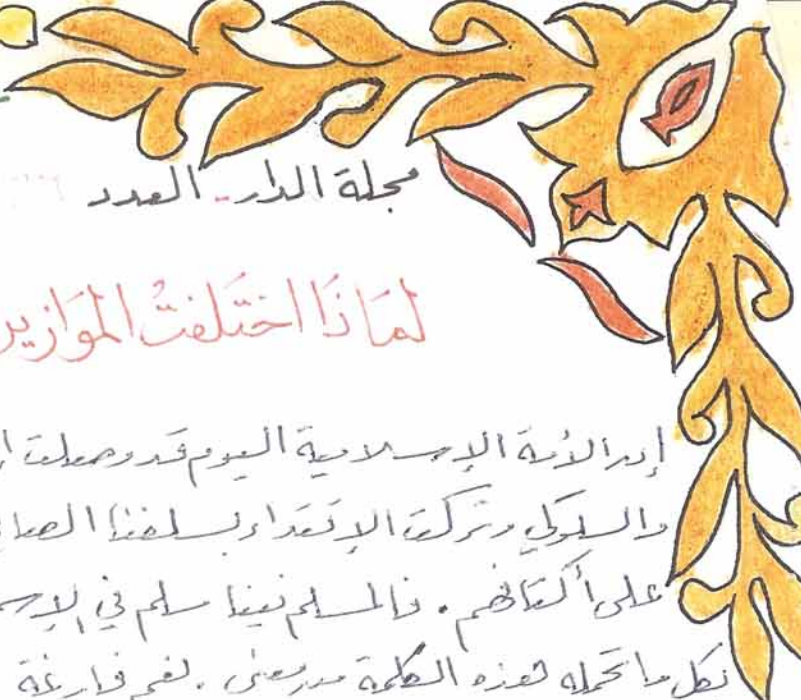 مجلة الدار - العدد
لمَاذَا اختَلفتْ الموَازين
إن الأمة الإسلامية اليوم قد وصلت
والسلوكي وتركت الإقتداء بسلفنا
على أكتافهم . فالمسلم فينا مسلم في
بكل ما تحمله هذه الكلمة من معنى . لغم فارغة